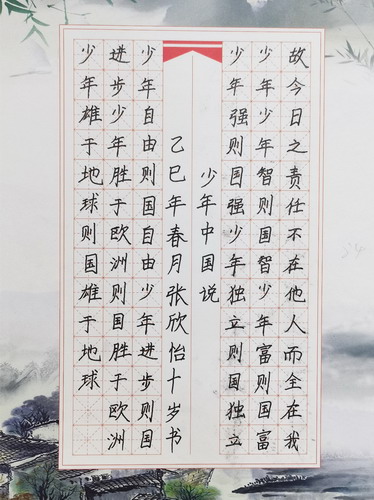 故今日之责任不在他人而全在我
少年少年智则国智少年富则国富
少年强则国强少年独立则国独立
少年中国说
乙巳年春月张欣怡十岁书
少年自由则国自由少年进步则国
进步少年胜于欧洲则国胜于欧洲
少年雄于地球则国雄于地球